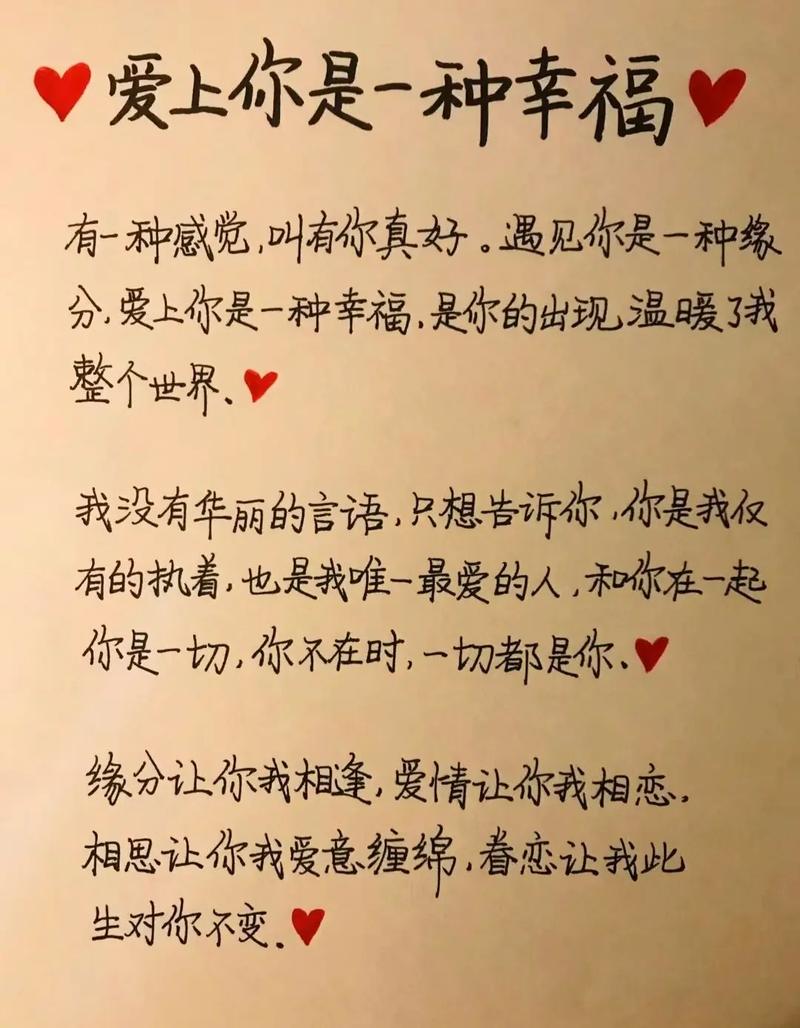 爱上你是一种幸福
有一种感觉,叫有你真好。遇见你是一种缘
分,爱上你是一种幸福,是你的出现,温暖了我
整个世界、
我没有华丽的言语,只想告诉你,你是我仅
有的执着,也是我唯一最爱的人,和你在一起
你是一切,你不在时,一切都是你、
缘分让你我相逢,爱情让你我相恋.
相思让你我爱意缠绵,眷恋让我此
生对你不变.